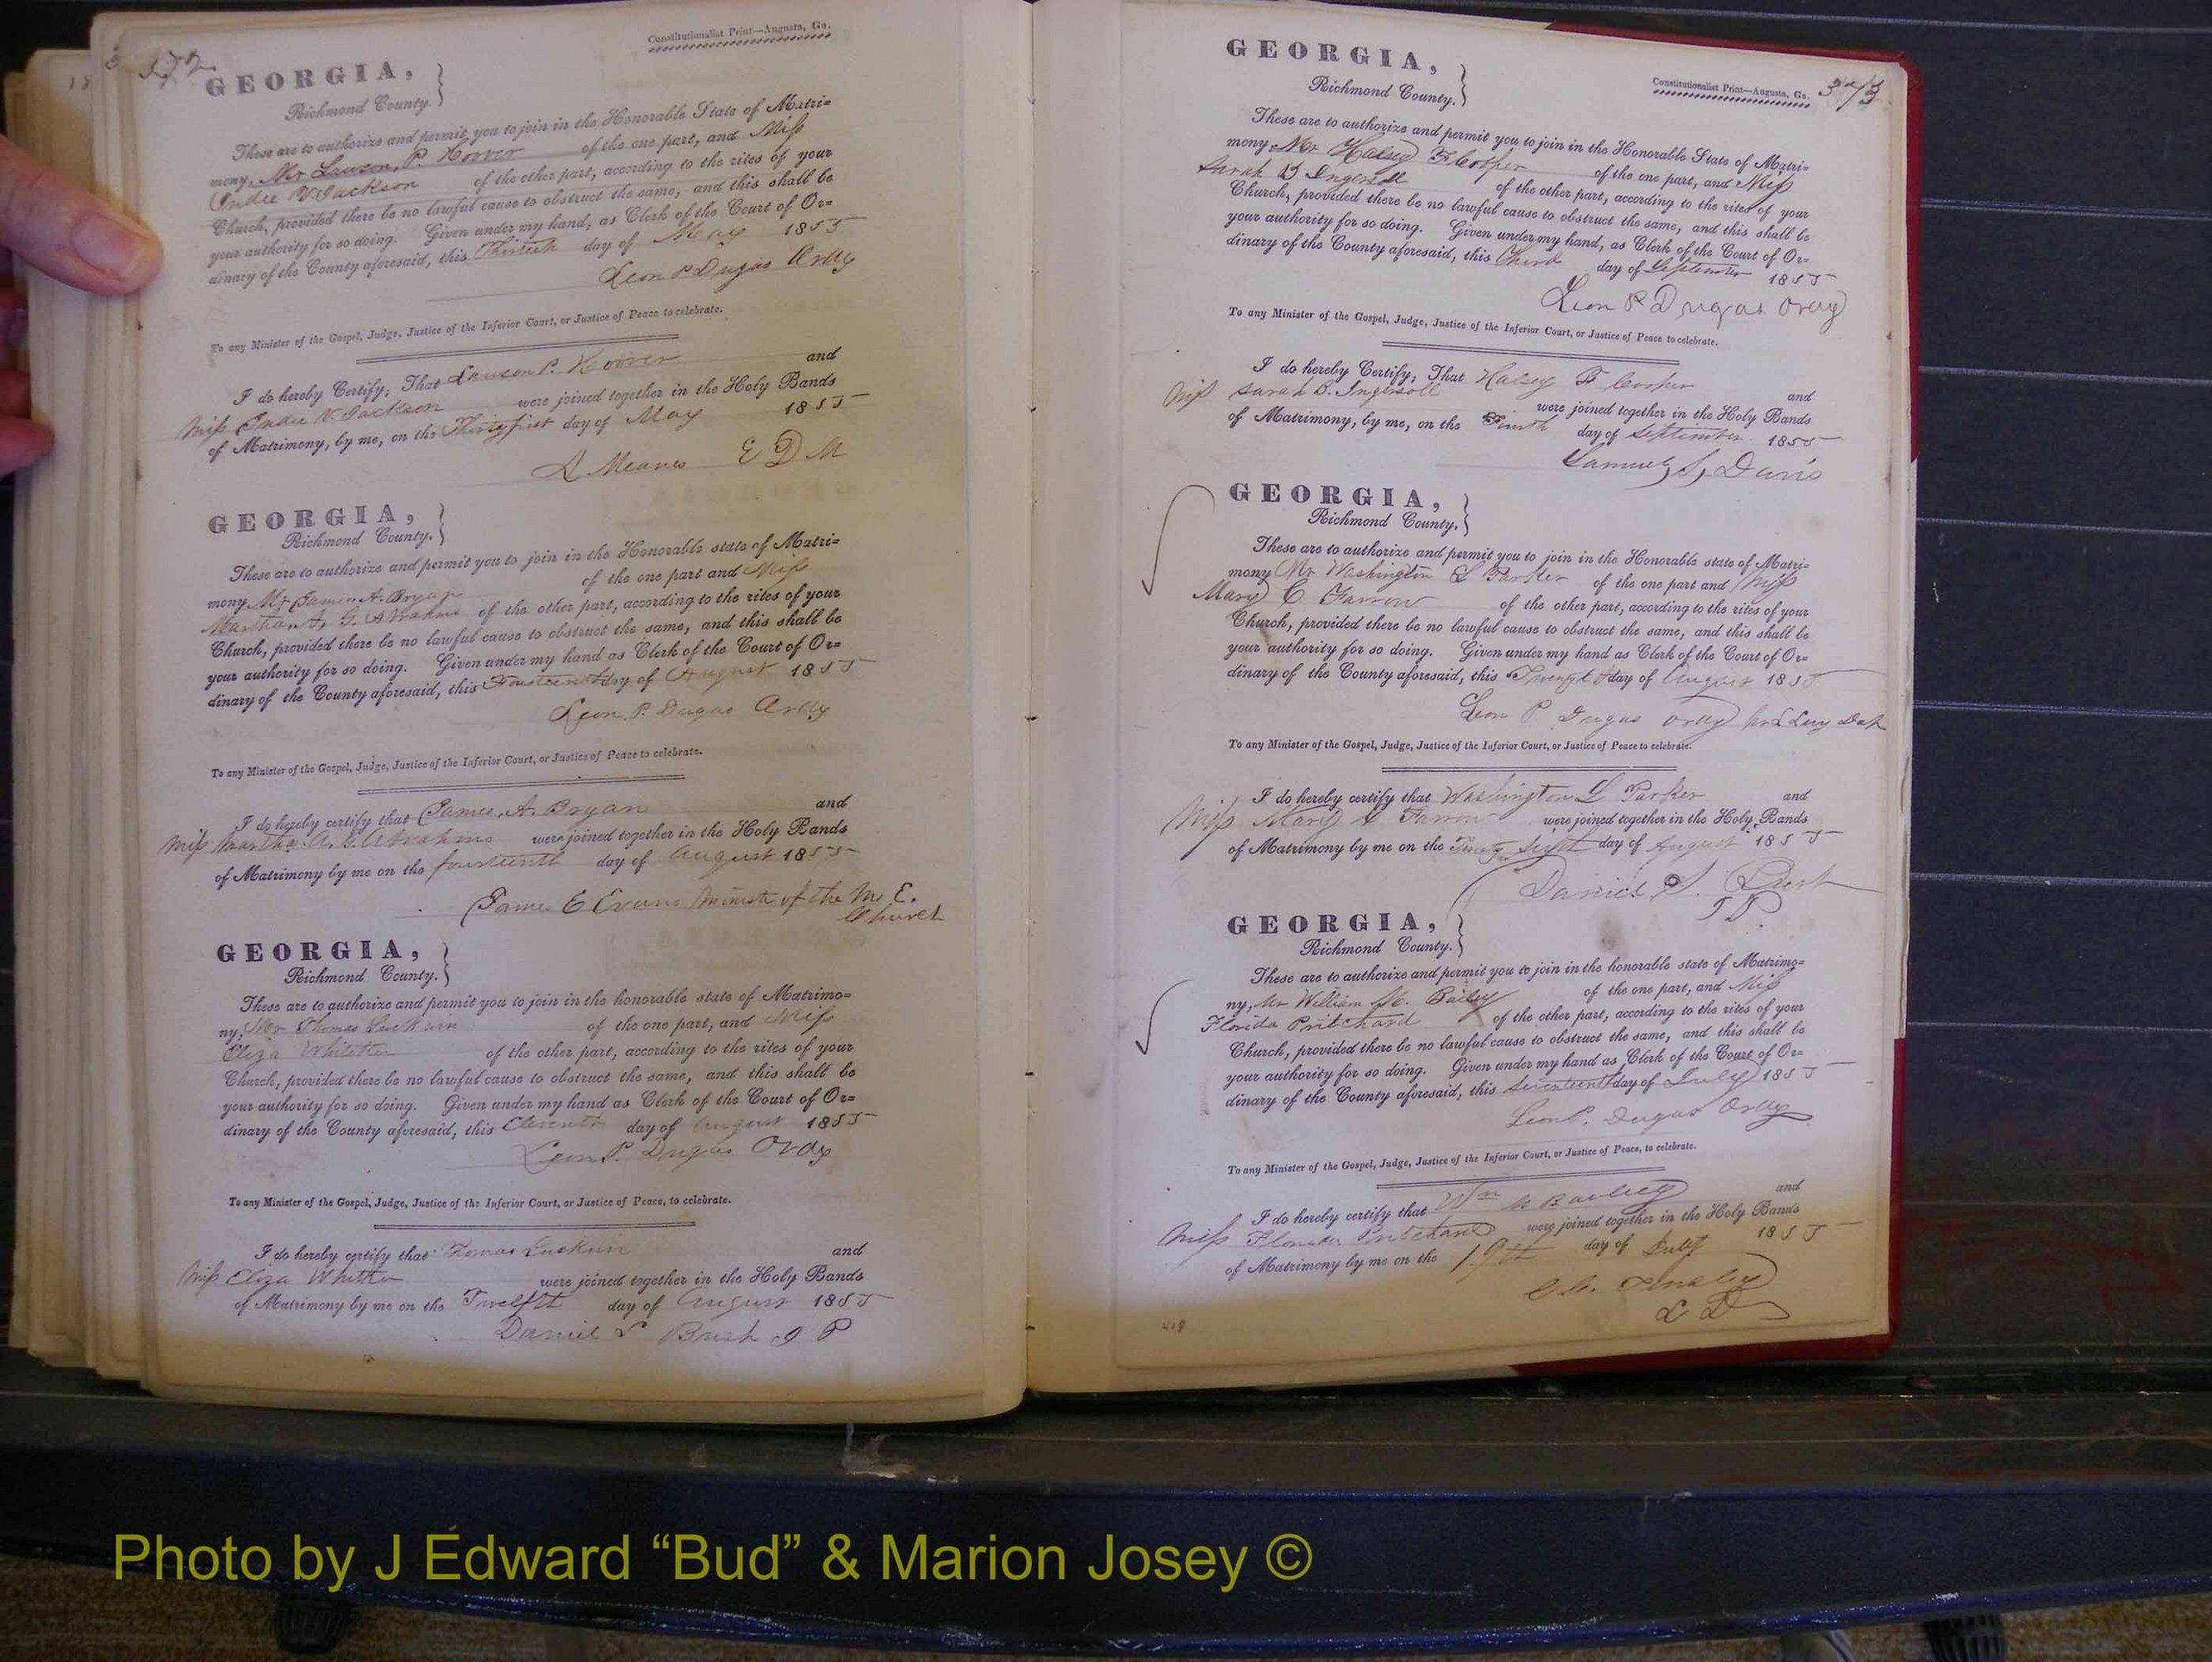 372
Constitutionalist Print—Augusta, Ga.
GEORGIA,
Richmond County.
These are to authorize and permit you to join in the Honorable State of Matri=
mony, Mr Lawson P. Hoover of the one part, and Miss
Indie V. Jackson of the other part, according to the rites of your
Church, provided there be no lawful cause to obstruct the same, and this shall be
your authority for so doing. Given under my hand, as Clerk of the Court of Or=
dinary of the County aforesaid, this day of May 1855
Leon P Dugas Ordy
To any Minister of the Gospel, Judge, Justice of the Inferior Court, or Justice of Peace to celebrate.
I do hereby Certify; That Lawson P. Hoover and
Miss Indie V. Jackson were joined together in the Holy Bands
of Matrimony, by me, on the Thirty first day of May 1855
A Means E D M
GEORGIA,
Richmond County.
These are to authorize and permit you to join in the Honorable state of Matri=
mony Mr James A. Bryan of the one part and Miss
Martha A. G. Abrahams of the other part, according to the rites of your
Church, provided there be no lawful cause to obstruct the same, and this shall be
your authority for so doing. Given under my hand as Clerk of the Court of Or=
dinary of the County aforesaid, this Fourteenth day of August 1855
Leon P. Dugas Ordy
To any Minister of the Gospel, Judge, Justice of the Inferior Court, or Justice of Peace to celebrate.
I do hereby certify that James A. Bryan and
Miss Martha A. G. Abrahams were joined together in the Holy Bands
of Matrimony by me on the fourteenth day of August 1855
James E Evans Minister of the M. E.
Church
GEORGIA,
Richmond County.
These are to authorize and permit you to join in the honorable state of Matrimo=
ny, Mr Thomas of the one part, and Miss
Eliza of the other part, according to the rites of your
Church, provided there be no lawful cause to obstruct the same, and this shall be
your authority for so doing. Given under my hand as Clerk of the Court of Or=
dinary of the County aforesaid, this Eleventh day of August 1855
Leon P. Dugas Ordy
To any Minister of the Gospel, Judge, Justice of the Inferior Court, or Justice of Peace, to celebrate.
I do hereby certify that Thomas and
Miss Eliza were joined together in the Holy Bands
of Matrimony by me on the Twelfth day of August 1855
Daniel S Bush J P
373
Constitutionalist Print—Augusta, Ga.
GEORGIA,
Richmond County.
These are to authorize and permit you to join in the Honorable State of Matri=
mony, Mr Halsey F Cooper of the one part, and Miss
Sarah B Ingersoll of the other part, according to the rites of your
Church, provided there be no lawful cause to obstruct the same, and this shall be
your authority for so doing. Given under my hand, as Clerk of the Court of Or=
dinary of the County aforesaid, this Third day of September 1855
Leon P Dugas Ordy
To any Minister of the Gospel, Judge, Justice of the Inferior Court, or Justice of Peace to celebrate.
I do hereby Certify; That Halsey F Cooper and
Miss Sarah B. Ingersoll were joined together in the Holy Bands
of Matrimony, by me, on the Fourth day of September 1855
Samuel S, Davis
GEORGIA,
Richmond County.
These are to authorize and permit you to join in the Honorable state of Matri=
mony Mr Washington L Parker of the one part and Miss
Mary C. Farrow of the other part, according to the rites of your
Church, provided there be no lawful cause to obstruct the same, and this shall be
your authority for so doing. Given under my hand as Clerk of the Court of Or=
dinary of the County aforesaid, this day of August 1855
Leon P Dugas Ordy
To any Minister of the Gospel, Judge, Justice of the Inferior Court, or Justice of Peace to celebrate.
I do hereby certify that Washington L Parker and
Miss Mary C Farrow were joined together in the Holy Bands
of Matrimony by me on the Twenty Sixth day of August 1855
Daniel S. Bush
J P.
GEORGIA,
Richmond County.
These are to authorize and permit you to join in the honorable state of Matrimo=
ny, Mr William M. Bailey of the one part, and Miss
Florida Pritchard of the other part, according to the rites of your
Church, provided there be no lawful cause to obstruct the same, and this shall be
your authority for so doing. Given under my hand as Clerk of the Court of Or=
dinary of the County aforesaid, this Seventeenth day of July 1855
Leon P. Dugas Ordy
To any Minister of the Gospel, Judge, Justice of the Inferior Court, or Justice of Peace, to celebrate.
I do hereby certify that Wm M Bailey and
Miss Florida Pritchard were joined together in the Holy Bands
of Matrimony by me on the 19th day of July 1855
Tinsley
Photo by J Edward “Bud” & Marion Josey ©